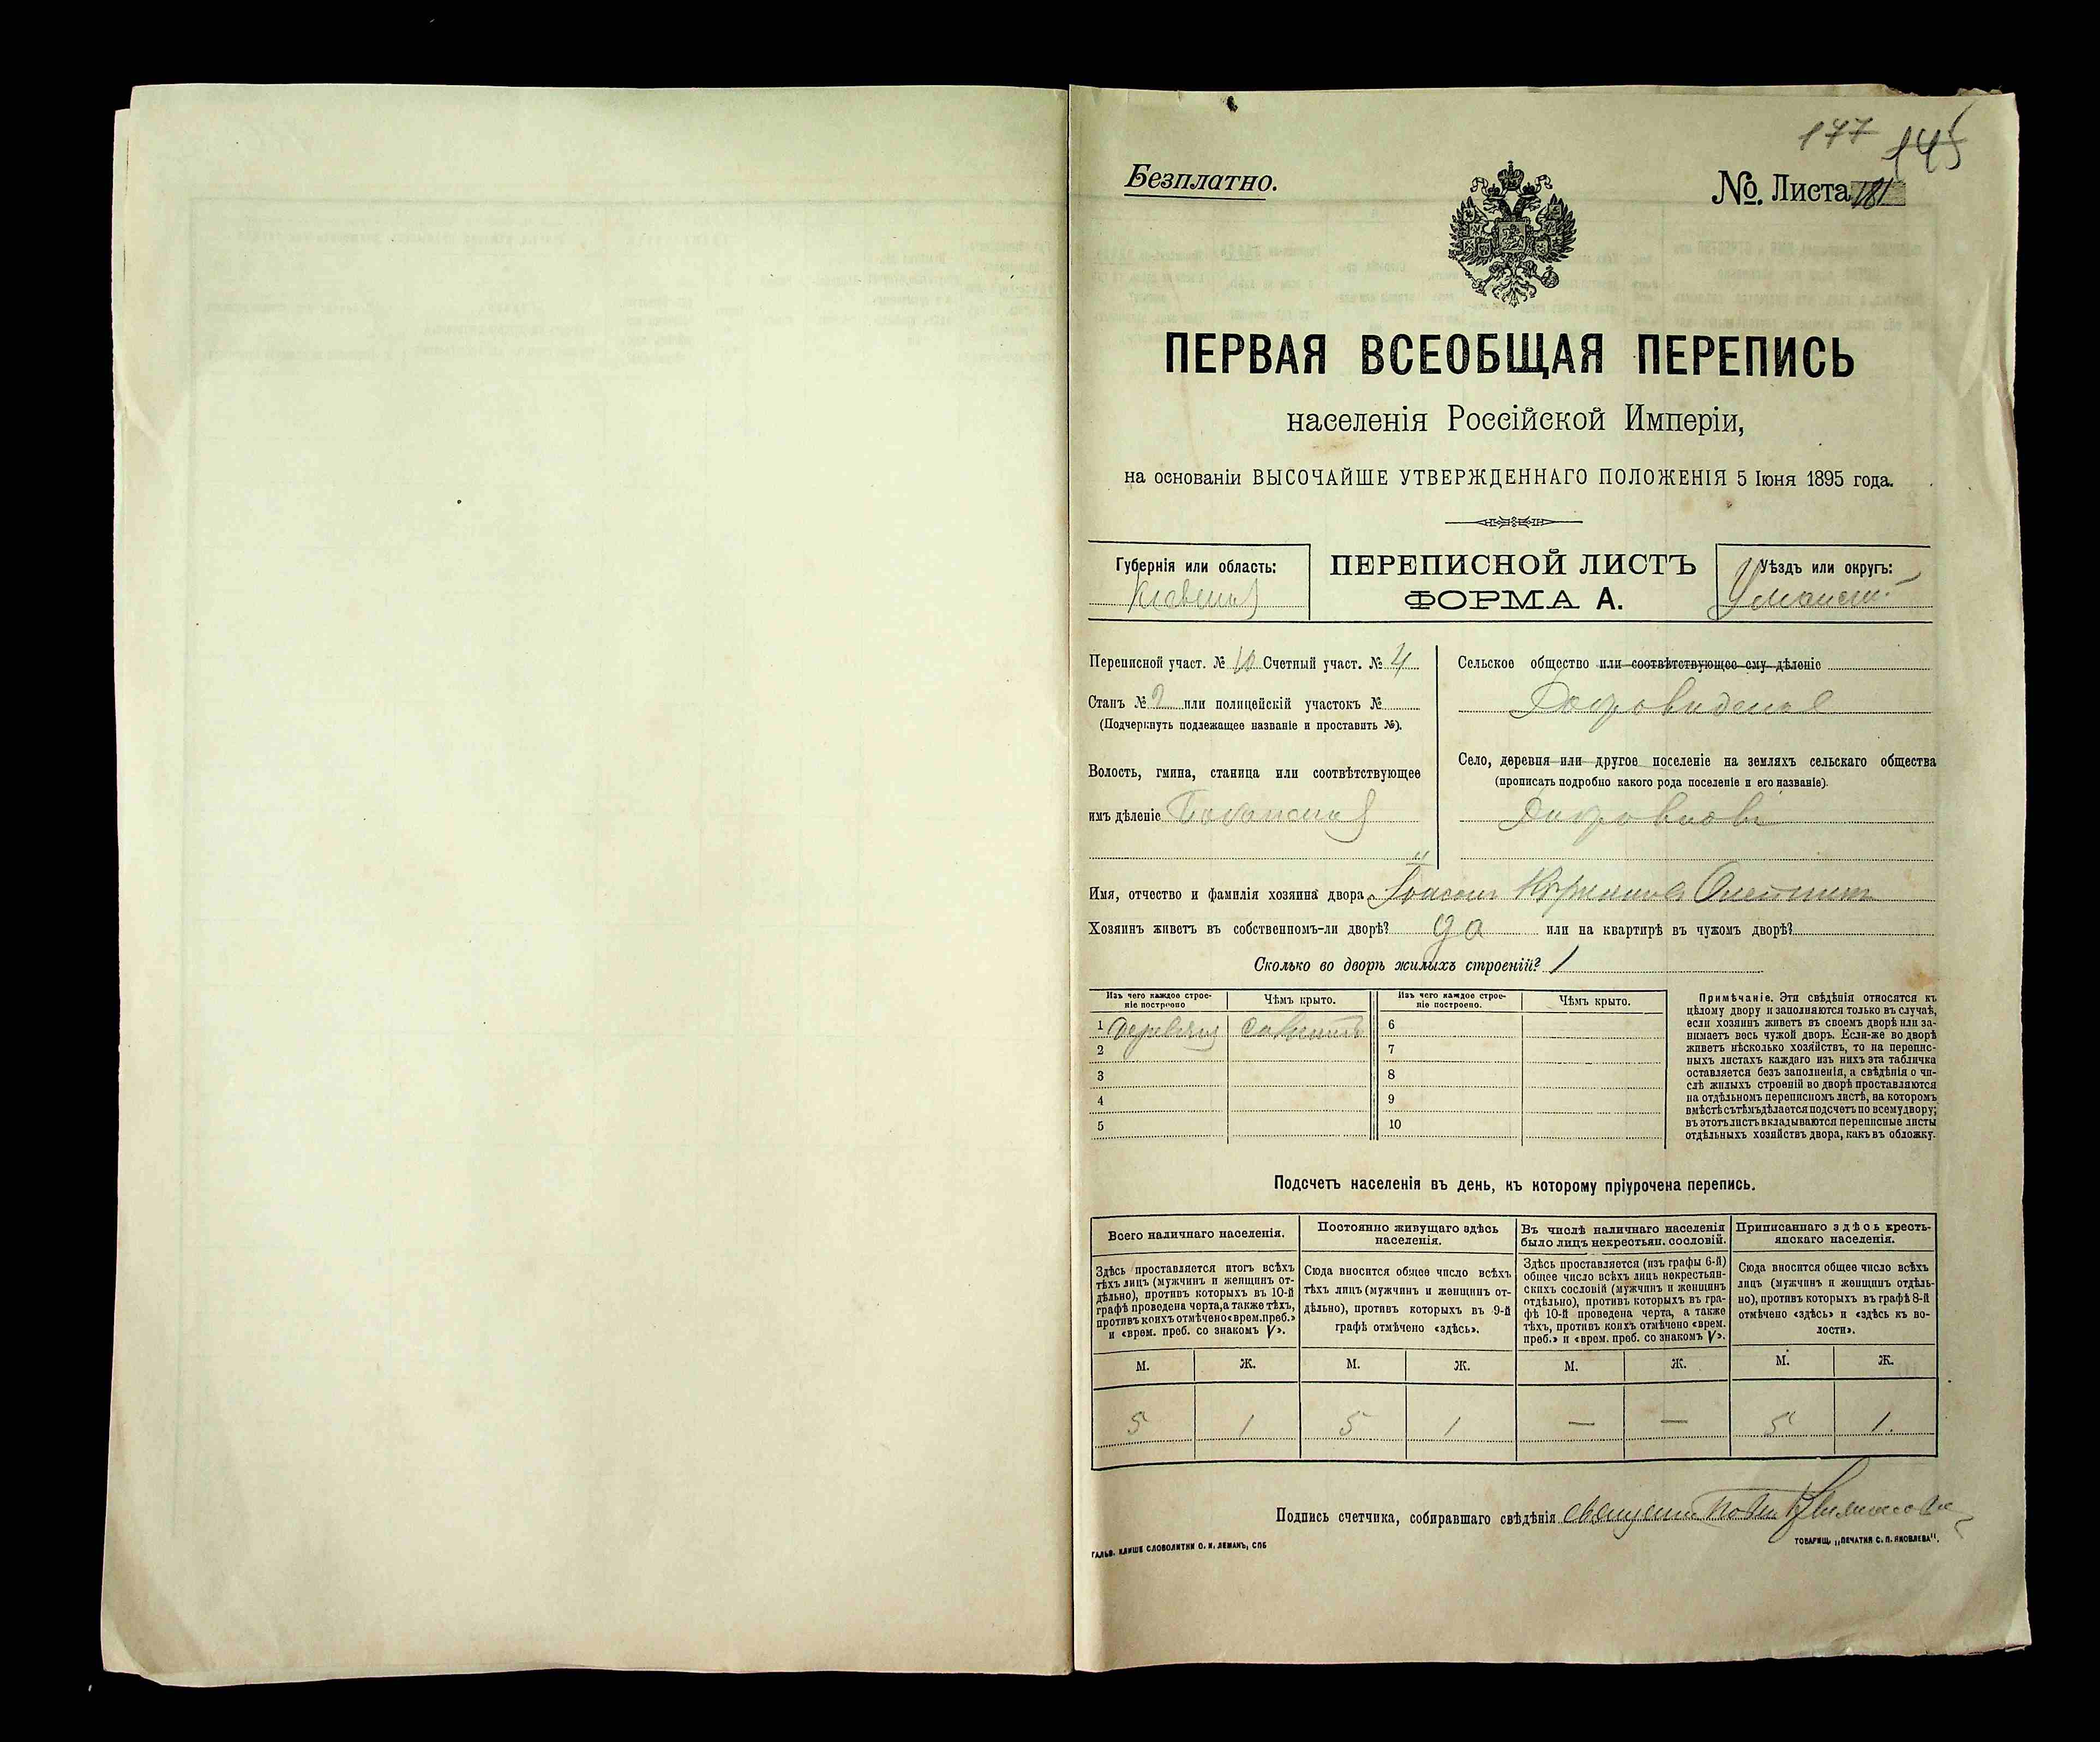 177 145
Безплатно.
№. Листа 181
ПЕРВАЯ ВСЕОБЩАЯ ПЕРЕПИСЬ
населенія Россійской Имперіи,
на основаніи ВЫСОЧАЙШЕ УТВЕРЖДЕННАГО ПОЛОЖЕНІЯ 5 Іюня 1895 года.
Губернія или область:
Кіевская
ПЕРЕПИСНОЙ ЛИСТЪ
ФОРМА А.
Уѣздъ или округъ:
Уманскій
Переписной участ. № 10 Счетный участ. № 4
Станъ № 2 или полицейскій участокъ №
(Подчеркнуть подлежащее названіе и проставить №).
Волость, гмина, станица или соотвѣтствующее
имъ дѣленіе
Сельское общество или соотвѣтствующее ему дѣленіе
Село, деревня или другое поселеніе на земляхъ сельскаго общества
(прописать подробно какого рода поселеніе и его названіе).
Имя, отчество и фамилія хозяина двора
Хозяинъ живетъ въ собственномъ-ли дворѣ? да или на квартирѣ въ чужомъ дворѣ?
Сколько во дворѣ жилыхъ строеній? 1
Изъ чего каждое строе-
ніе построено
Чѣмъ крыто.
Изъ чего каждое строе-
ніе построено.
Чѣмъ крыто.
1
6
2
7
3
8
4
9
5
10
Примѣчаніе. Эти свѣдѣнія относятся къ
цѣлому двору и заполняются только въ случаѣ,
если хозяинъ живетъ въ своемъ дворѣ или за-
нимаетъ весь чужой дворъ. Если-же во дворѣ
живетъ нѣсколько хозяйствъ, то на перепис-
ныхъ листахъ каждаго изъ нихъ эта табличка
оставляется безъ заполненія, а свѣдѣнія о чи-
слѣ жилыхъ строеній во дворѣ проставляются
на отдѣльномъ переписномъ листѣ, на которомъ
вмѣстѣ съ тѣмъ дѣлается подсчетъ по всему двору;
въ этотъ листъ вкладываются переписные листы
отдѣльныхъ хозяйствъ двора, какъ въ обложку.
Подсчетъ населенія въ день, къ которому пріурочена перепись.
Всего наличнаго населенія.
Постоянно живущаго здѣсь
населенія.
Въ числѣ наличнаго населенія
было лицъ некрестьян. сословій.
Приписаннаго здѣсь кресть-
янскаго населенія.
Здѣсь проставляется итогъ всѣхъ
тѣхъ лицъ (мужчинъ и женщинъ от-
дѣльно), противъ которыхъ въ 10-й
графѣ проведена черта, а также тѣхъ,
противъ коихъ отмѣчено «врем. преб.»
и «врем. преб. со знакомъ V».
Сюда вносится общее число всѣхъ
тѣхъ лицъ (мужчинъ и женщинъ от-
дѣльно), противъ которыхъ въ 9-й
графѣ отмѣчено «здѣсь».
Здѣсь проставляется (изъ графы 6-й)
общее число всѣхъ лицъ некрестьян-
скихъ сословій (мужчинъ и женщинъ
отдѣльно), противъ которыхъ въ гра-
фѣ 10-й проведена черта, а также
тѣхъ, противъ коихъ отмѣчено «врем.
преб.» и «врем. преб. со знакомъ V».
Сюда вносится общее число всѣхъ
лицъ (мужчинъ и женщинъ отдѣль-
но), противъ которыхъ въ графѣ 8-й
отмѣчено «здѣсь» и «здѣсь къ во-
лости».
М. Ж. М. Ж. М. Ж. М. Ж.
5 1 5 1 — — 5 1.
Подпись счетчика, собиравшаго свѣдѣнія
ГАЛЬВ. КЛИШЕ СЛОВОЛИТНИ О. И. ЛЕМАНЪ, СПБ
ТОВАРИЩ. „ПЕЧАТНЯ С. П. ЯКОВЛЕВА".